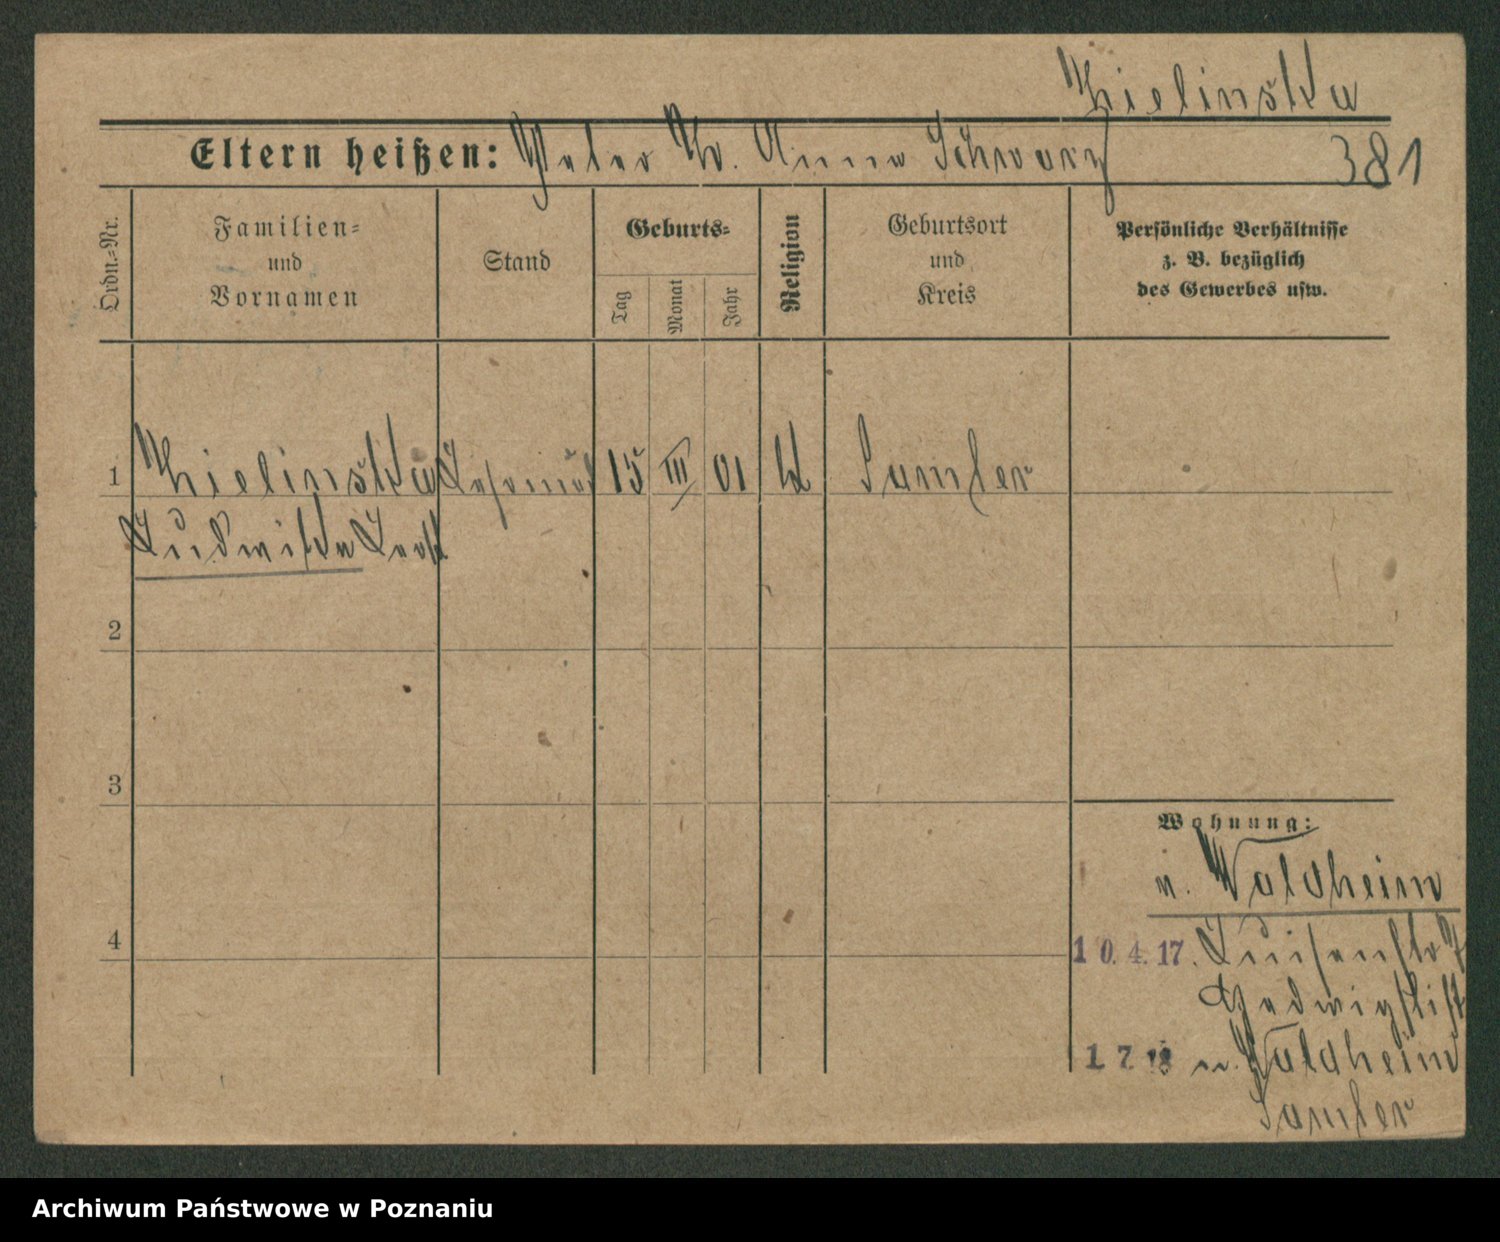 Zielinska
Eltern heißen: Peter Z. Anna Schwarz
381
Ordn.-Nr.
Familien-
und
Vornamen
Stand
Geburts-
Tag
Monat
Jahr
Religion
Geburtsort
und
Kreis
Persönliche Verhältnisse
z. B. bezüglich
des Gewerbes usw.
1 Zielinska 15 III 01 k Samter
Ludwika
2
3
4
Wohnung:
n. Waldheim
10.4.17. Luisenstr 7
Hedwigstift
1 7 18 n. Waldheim
Samter
Archiwum Państwowe w Poznaniu